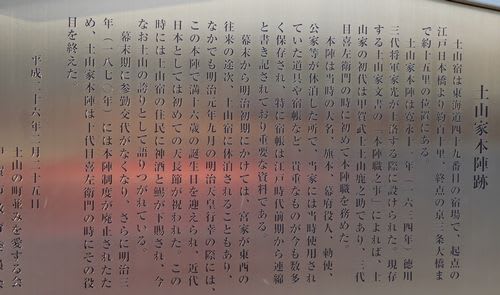 土山家本陣跡
土山宿は東海道四十九番目の宿場で、起点の
江戸日本橋より約百十里、終点の京三条大橋ま
で約十五里の位置にある。
土山家本陣は寛永十一年（一六三四年）徳川
三代将軍家光が上洛する際に設けられた。現存
する土山家文書の「本陣職之事」によれば、土
山家の初代は甲賀武士土山鹿之助であり、三代
目喜左衛門の時に初めて本陣職を務めた。
本陣は当時の大名、旗本、幕府役人、勅使、
公家等が休泊した所で、当家には当時使用され
ていた道具や宿帳など、貴重なものが今も数多
く保存され、特に宿帳は江戸時代前期から連綿
と書き記されており重要な資料である。
幕末から明治初期にかけては、宮家が東西の
往来の途次、土山宿に休泊されることもあり、
なかでも明治元年九月の明治天皇行幸の際には、
この本陣で満十六歳の誕生日を迎えられ、近代
日本としては初めての天長節が祝われた。この
時には土山宿の住民に神酒と鯣が下賜され、今
なお土山の誇りとして語りつがれている。
幕末期に参勤交代がなくなり、さらに明治三
年（一八七〇年）には本陣制度が廃止されたた
め、土山家本陣は十代目喜左衛門の時にその役
目を終えた。
平成二十六年二月二十五日
土山の町並みを愛する会